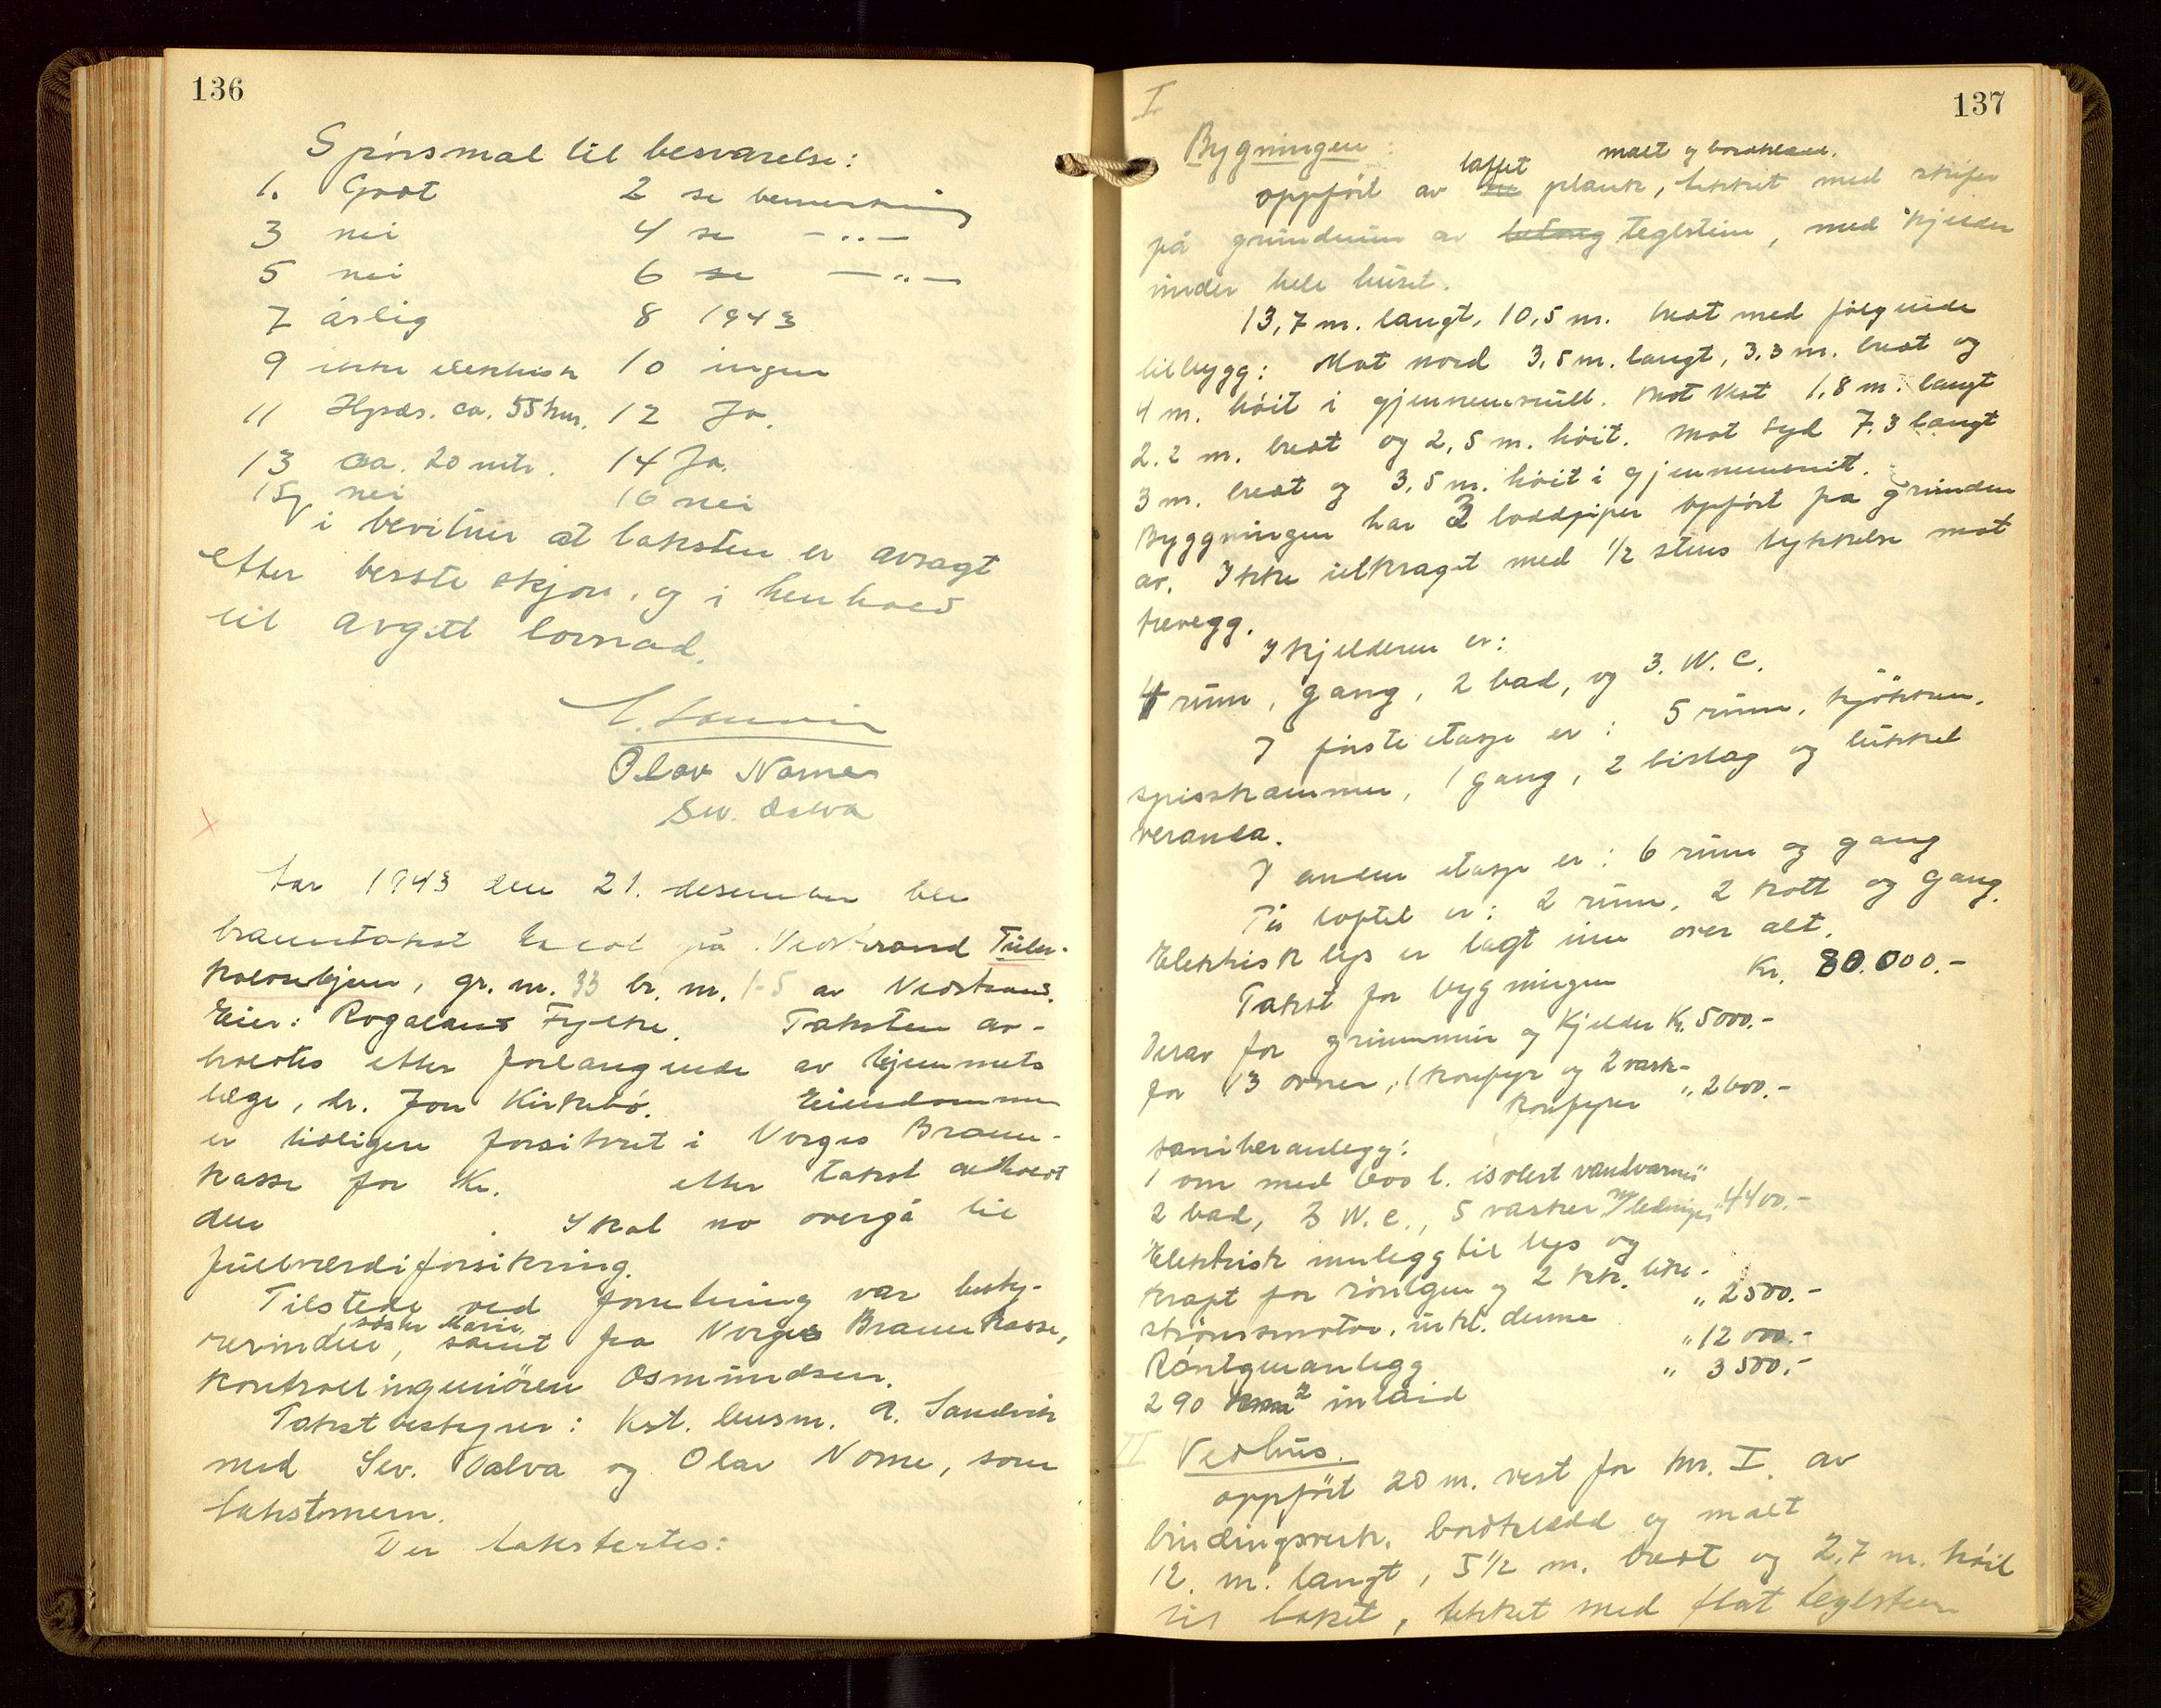 136
Spörsmal til besvarelse:
1. Godt 2 se bemerkning
3 nei 4 se -"-
5 nei 6 se -"-
7 årlig 8 1943
9 ikke elektrisk 10 ingen
11 Hpds. ca. 55 km. 12 Ja.
13 ca. 20 mtr. 14 Ja.
15 nei 16 nei
Vi bevitner at taksten er avsagt
efter beste skjön, og i henhold
til avgitt lovnad.
Olav Nome
Sev. Dalva
År 1943 den 21. desember ble
branntakst holdt på Vedstrand Tuber-
kolosehjem, gr. nr. 33 br. nr. 1-5 av Vedstrand.
Eier: Rogaland Fylke. Taksten av-
holdtes etter forlangende av hjemmets
læge, dr. Jon Kirkebö. Eiendommen
er tidligere forsikret i Norges Brann-
kasse for Kr. etter takst avholdt
den . Skal no overgå til
fullverdiforsikring.
Tilstede ved forretning var besty-
rerinden, söster Marie, samt fra Norges Brannkasse,
kontrollingeniören Osmundsen.
Takstbestyrer: Kst. lensm. A. Sandvik
med Sev. Dalva og Olav Nome, som
takstmenn.
Der takstertes:
137
I.
Bygningen:
oppfört av laftet plank, malt og bordkledd, tekket med skifer
på grundmur av betong teglstein, med kjelder
under hele huset.
13,7 m. langt, 10,5 m. bredt med fölgende
tilbygg: Mot nord 3,5 m. langt, 3,3 m. bredt og
4 m. höit i gjennemsnitt. Mot Vest 1,8 m. langt
2.2 m. bredt og 2,5 m. höit. Mot Syd 7.3 langt
3 m. bredt og 3,5 m. höit i gjennemsnitt.
Byggningen har 3 loddpiper opfört fra grunden
av. Ikke utkraget med 1/2 stens tykkelse mot
trevegg.
I kjelderen er:
4 rum, gang, 2 bad, og 3. W. C.
I förste etasje er: 5 rum, kjökken,
spisskammer, 1 gang, 2 bislag og lukket
veranda.
I anden etasje er: 6 rum og gang
På loftet er: 2 rum, 2 kott og gang.
Elektrisk lys er lagt inn over alt.
Takst for bygningen Kr. 80.000.-
Derav for grunnmur og kjelder Kr. 5000.-
for 13 ovner, 1 komfyr og 2 vask-
komfyrer " 2600.-
Saniteranlegg:
1 ovn med 600 l. isolert vandvarmer
2 bad, 3 W. C., 5 vasker m/ledninger " 4400.-
Elektrisk innlegg til lys og
kraft for röntgen og 2 stk. like-
strömsmotor, inkl. denne " 2500.-
Röntgenanlegg " 12000.-
290 m² inlaid " 3500.-
II Vedhus.
oppfört 20 m. vest for nr. I. av
bindingsverk, bordkledd og malt
12. m. langt, 5 1/2 m. bredt og 2,7 m. höit
til taket, tekket med flat teglsten